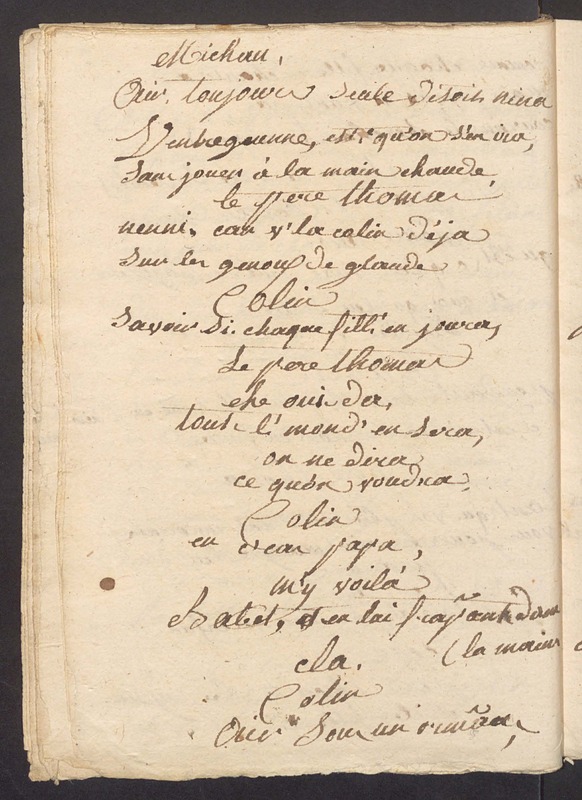 Michau,
Air, toujours seule disoit nina
Ventreguenne, est c' qu'on s'en ira,
Sans jouer à la main chaude,
le pere thomas
nenni, car v'la colin déja
Sur les genoux de glaude
Colin
Savoir si chaque fill' en jouera,
Le pere thomas
ehe oui da,
tout l' mond' en sera,
on ne dira
ce qu'on voudra,
Colin
en ce cas papa,
m'y voilà
Babet, et en lui frapant dans
(la main
cla.
Colin
Air Sous un ormeau,